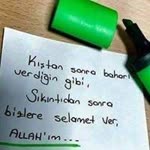 Kıştan sonra baharı
verdiğin gibi,
Sıkıntıdan sonra
bizlere selamet ver,
ALLAH'ım...